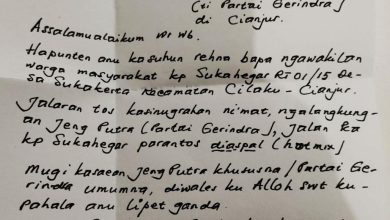 (ti Partai Gerindra)
di Cianjur.
Assalamualaikum Wr Wb.
Hapunten anu kasuhun rehna bapa ngawakilan
warga masyarakat kp Sukahegar RT 01/15 De-
sa Sukakerta Kecamatan Cilaku - Cianjur.
Jalaran tos kasinugrahan ni'mat, ngalangkung-
an Jeng Putra (Partai Gerindra), Jalan Ka
kp Sukahegar parantos diaspal (hotmix)
Mugi kasaean Jeng Putra khususna/Partai Ge-
rindra umumna, diwales ku Alloh swt ku-
pahala anu lipet ganda.